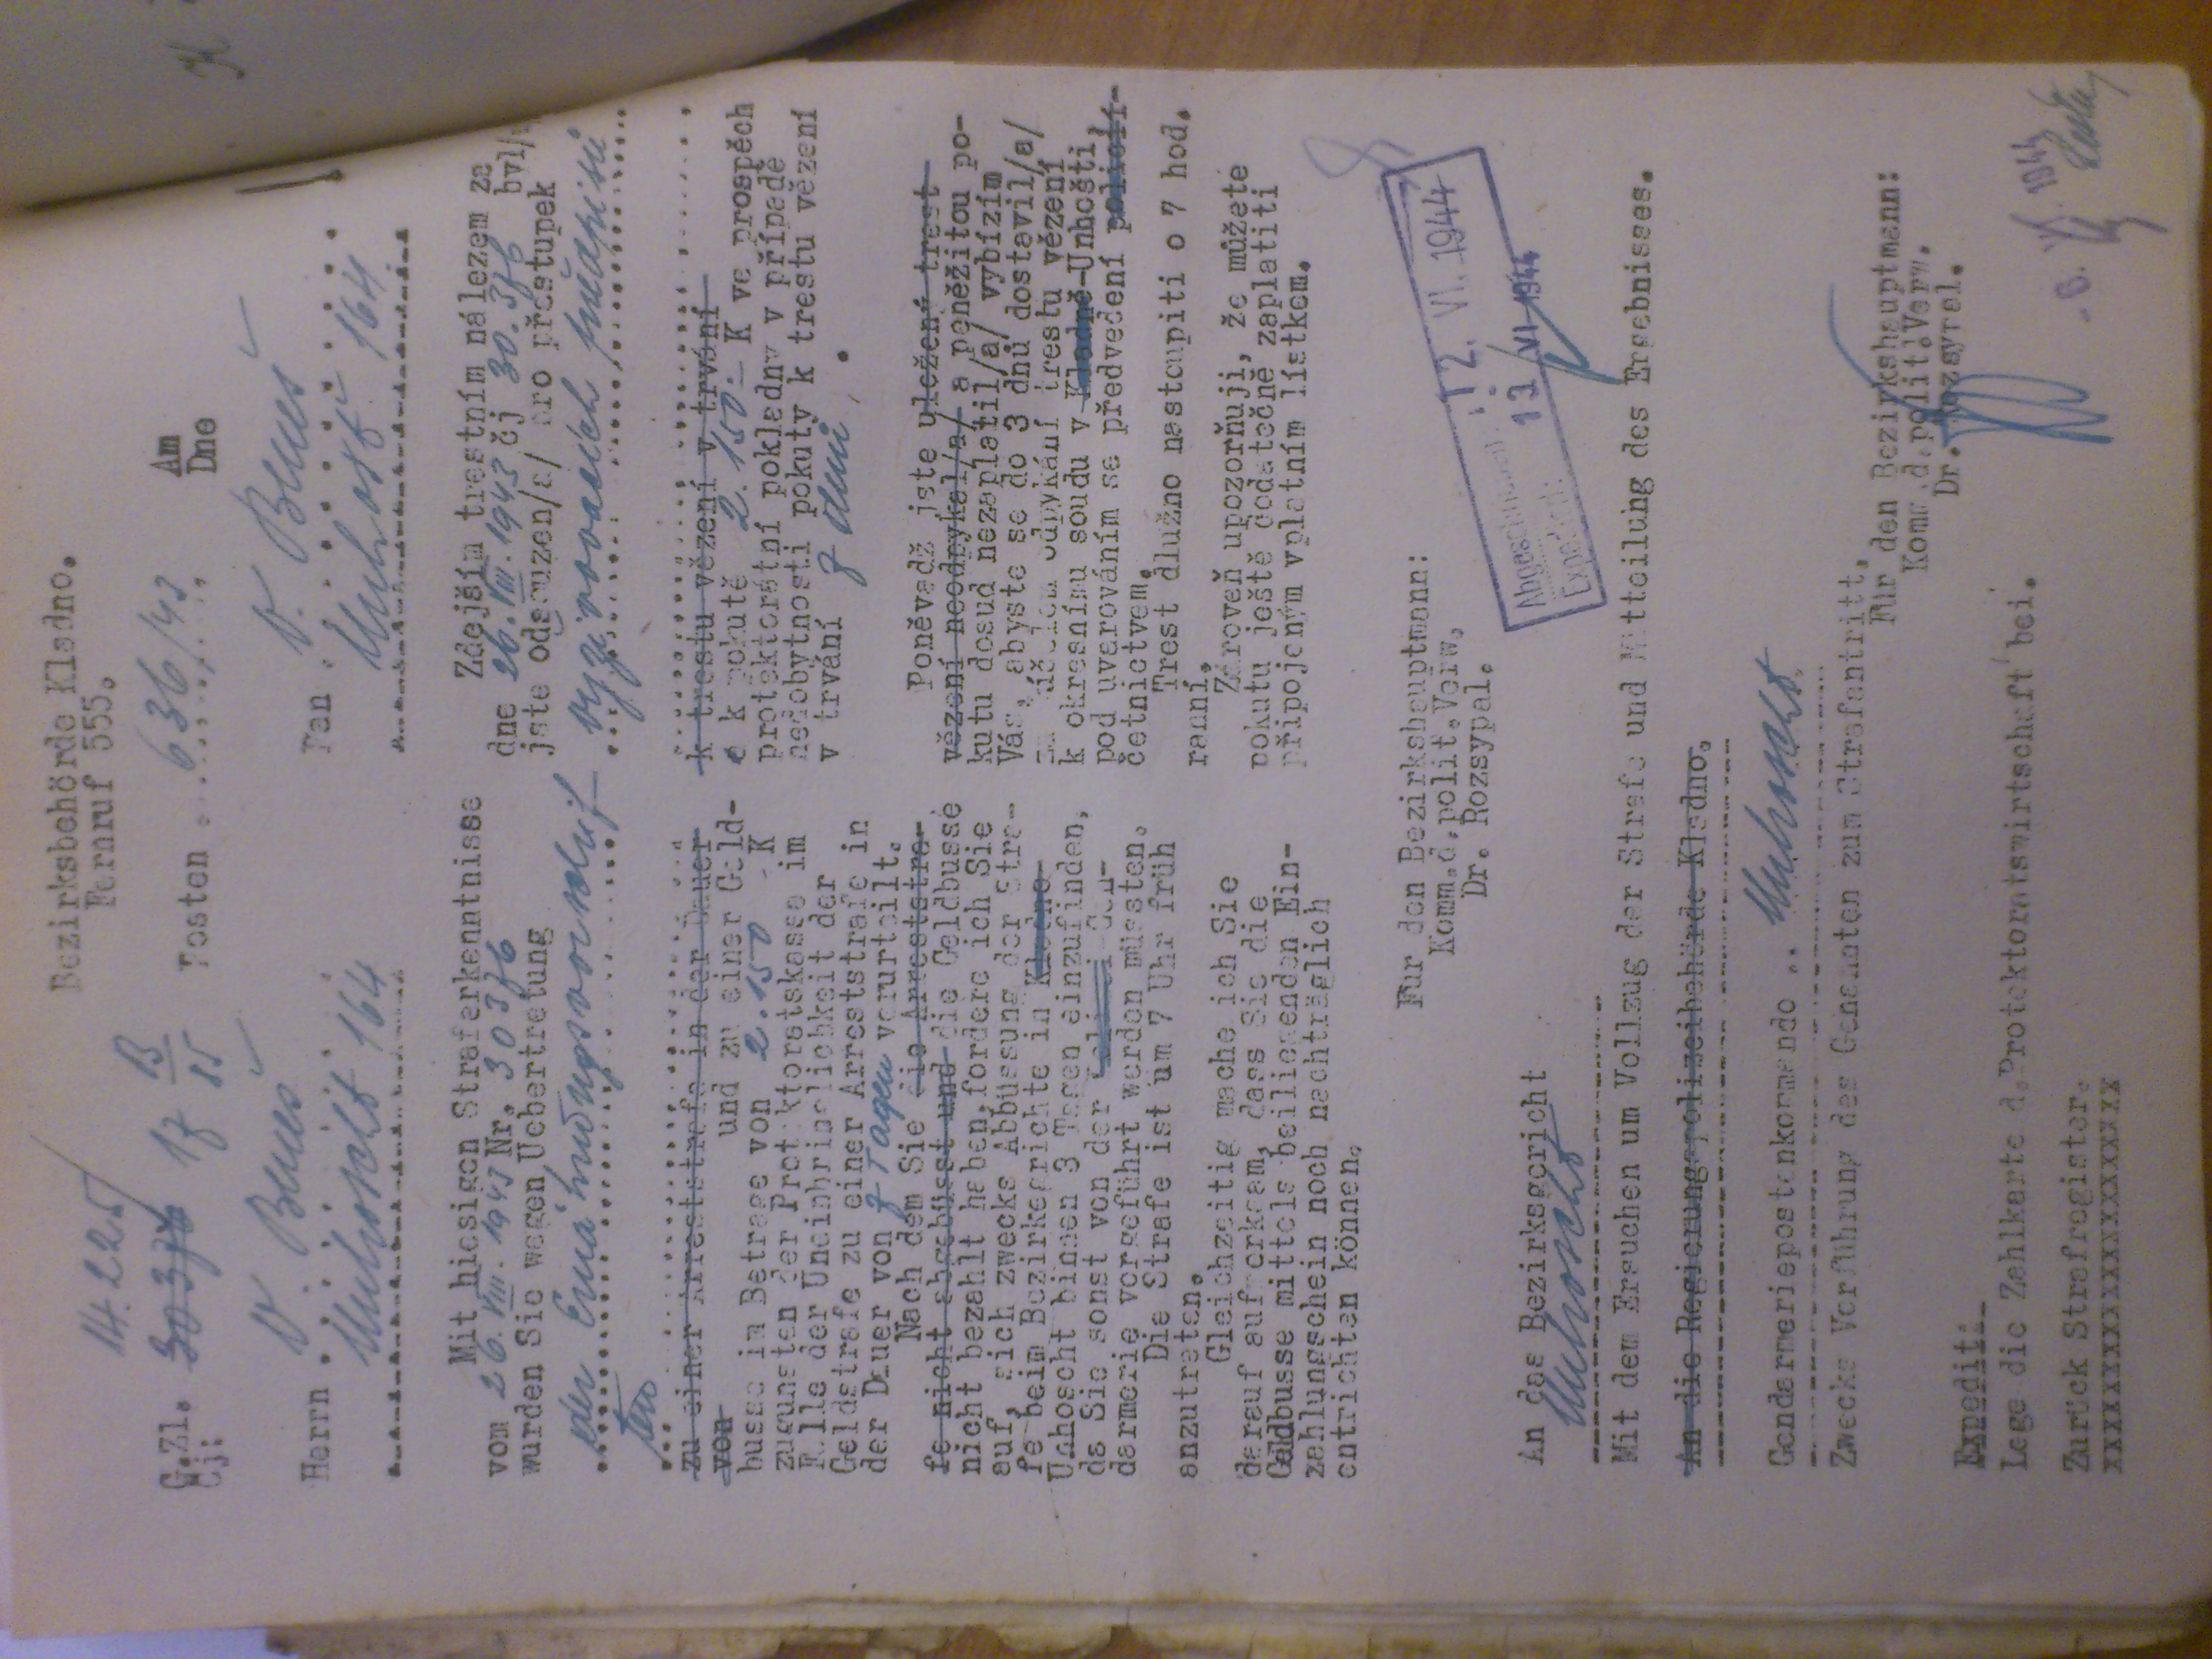 Bezirksbehörde Kladno.
Fernruf 555.
14.225/
G.Zl. 30376 17 B/85 Posten 636/43 Am
Čj: Dne
Herrn V. Beneš
Unhoscht 164
Pan V. Beneš
Unhošť 164
Mit hiesigen Straferkenntnisse
vom 26. VIII. 1943 Nr. 30376
wurden Sie wegen Uebertretung
der Ernährungsvorschrif-
ten
zu einer Arreststrafe in der Dauer
von und zu einer Geld-
busse im Betrage von 2.150 - K
zugunsten der Protektoratskasse im
Falle der Uneinbringlichkeit der
Geldstrafe zu einer Arreststrafe in
der Dauer von 7 Tagen verurteilt.
Nach dem Sie die Arreststra-
fe nicht abgebüsst und die Geldbusse
nicht bezahlt haben, fordere ich Sie
auf, sich zwecks Abbüssung der Stra-
fe beim Bezirksgrichte in Kladno-
Unhoscht binnen 3 Tagen einzufinden,
da Sie sonst von der Polizei-Gen-
darmerie vorgeführt werden müssten.
Die Strafe ist um 7 Uhr früh
anzutreten.
Gleichzeitig mache ich Sie
darauf aufmerksam, dass Sie die
Geldbusse mittels beiliegenden Ein-
zahlungschein noch nachträglich
entrichten können.
Zdejším trestním nálezem ze
dne 26. VIII. 1943 čj 30.376 byl/
jste odsouzen/a/ pro přestupek
vyživovacích předpisů
k trestu vězení v trvání
a k pokutě 2.150.- K ve prospěch
protektorátní pokladny v případě
nedobytnosti pokuty k trestu vězení
v trvání 7 dnů .
Poněvadž jste uložený trest
vězení neodpykal/a/ a peněžitou po-
kutu dosud nezaplatil/a/ vybízím
Vás, abyste se do 3 dnů dostavil/a/
za účelem odpykání trestu vězení
k okresnímu soudu v Kladně-Unhošti,
pod uvarováním se předvedení policií-
četnictvem.
Trest dlužno nastoupiti o 7 hod.
ranní.
Zároveň upozorňuji, že můžete
pokutu ještě dodatečně zaplatiti
připojeným vplatním lístkem.
Für den Bezirkshauptmann:
Komm.d.polit.Verw.
Dr. Rozsypal.
Abgeschrieben: 12. VI. 1944
Expediert: 13 VI 1944
An das Bezirksgericht
Unhoscht
Mit dem Ersuchen um Vollzug der Strafe und Mitteilung des Ergebnisses.
An die Regierungspolizeibehörde Kladno.
Gendarmeriepostenkommando .. Unhoscht.
Zwecks Vorführung des Genannten zum Strafantritt.
Für den Bezirkshauptmann:
Komm.d.polit.Verw.
Dr. Rozsypal.
Expedit:
Lege die Zahlkarte d.Protektoratswirtschaft bei.
Zurück Strafregister.
xxxxxxxxxxxxxxxxxxxxx
- 8. VI. 1944